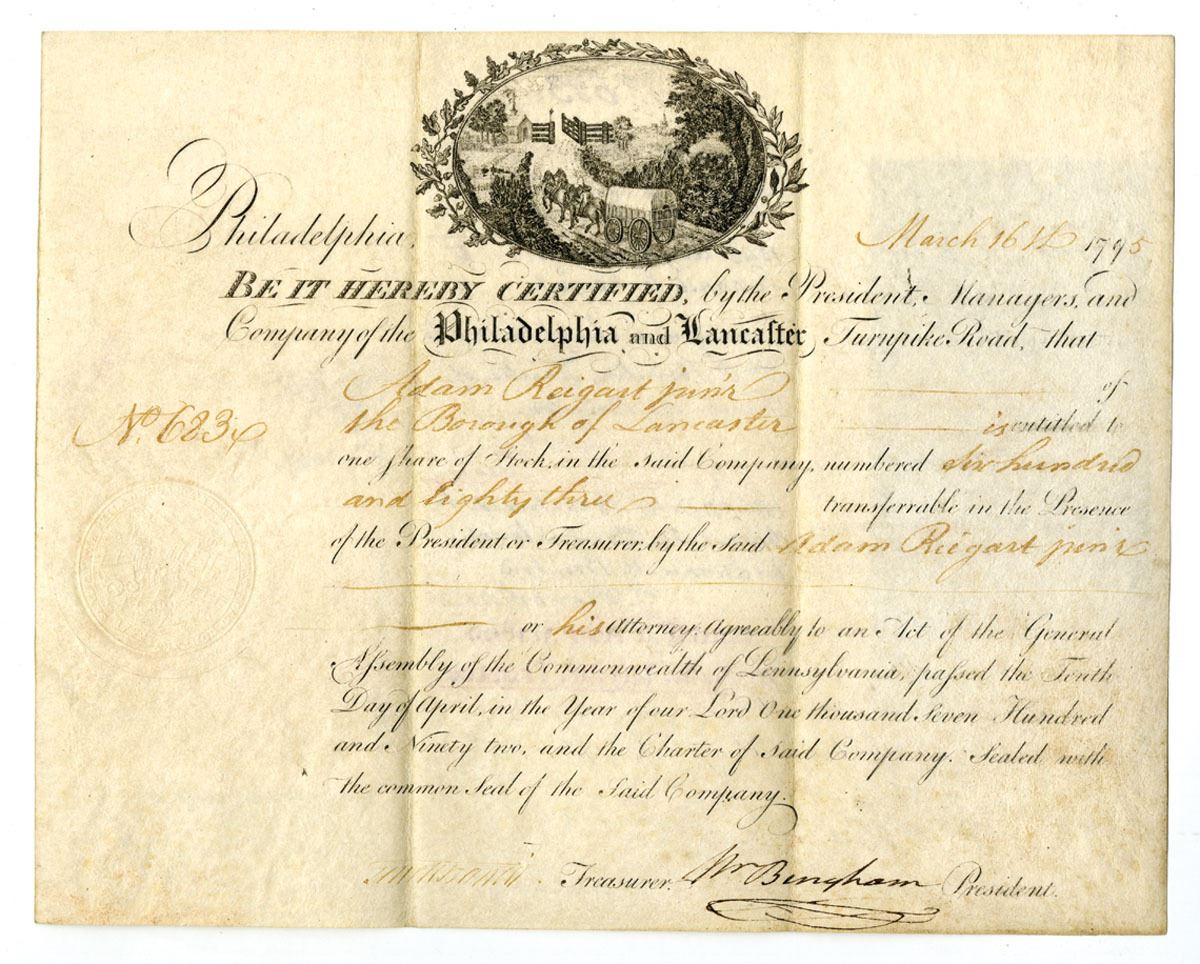 Philadelphia, March 16th 1795
BE IT HEREBY CERTIFIED, by the President, Managers, and
Company of the Philadelphia and Lancaster Turnpike Road, that
Adam Reigart jun'r of
No. 683 the Borough of Lancaster is entitled to
one share of Stock, in the said Company, numbered Six hundred
and Eighty three transferrable in the Presence
of the President or Treasurer, by the Said Adam Reigart jun'r
or his Attorney, Agreeably to an Act of the General
Assembly of the Commonwealth of Pennsylvania, passed the Tenth
Day of April, in the Year of our Lord One thousand Seven Hundred
and Ninety two, and the Charter of said Company. Sealed with
the common Seal of the Said Company.
Treasurer. Wm Bingham President.